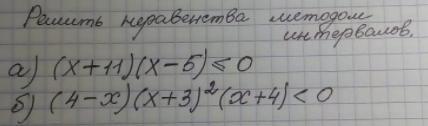 Решить неравенства методом
интервалов.
а) (х+11)(х-5)≤0
б) (4-x)(x+3)²(x+4)<0